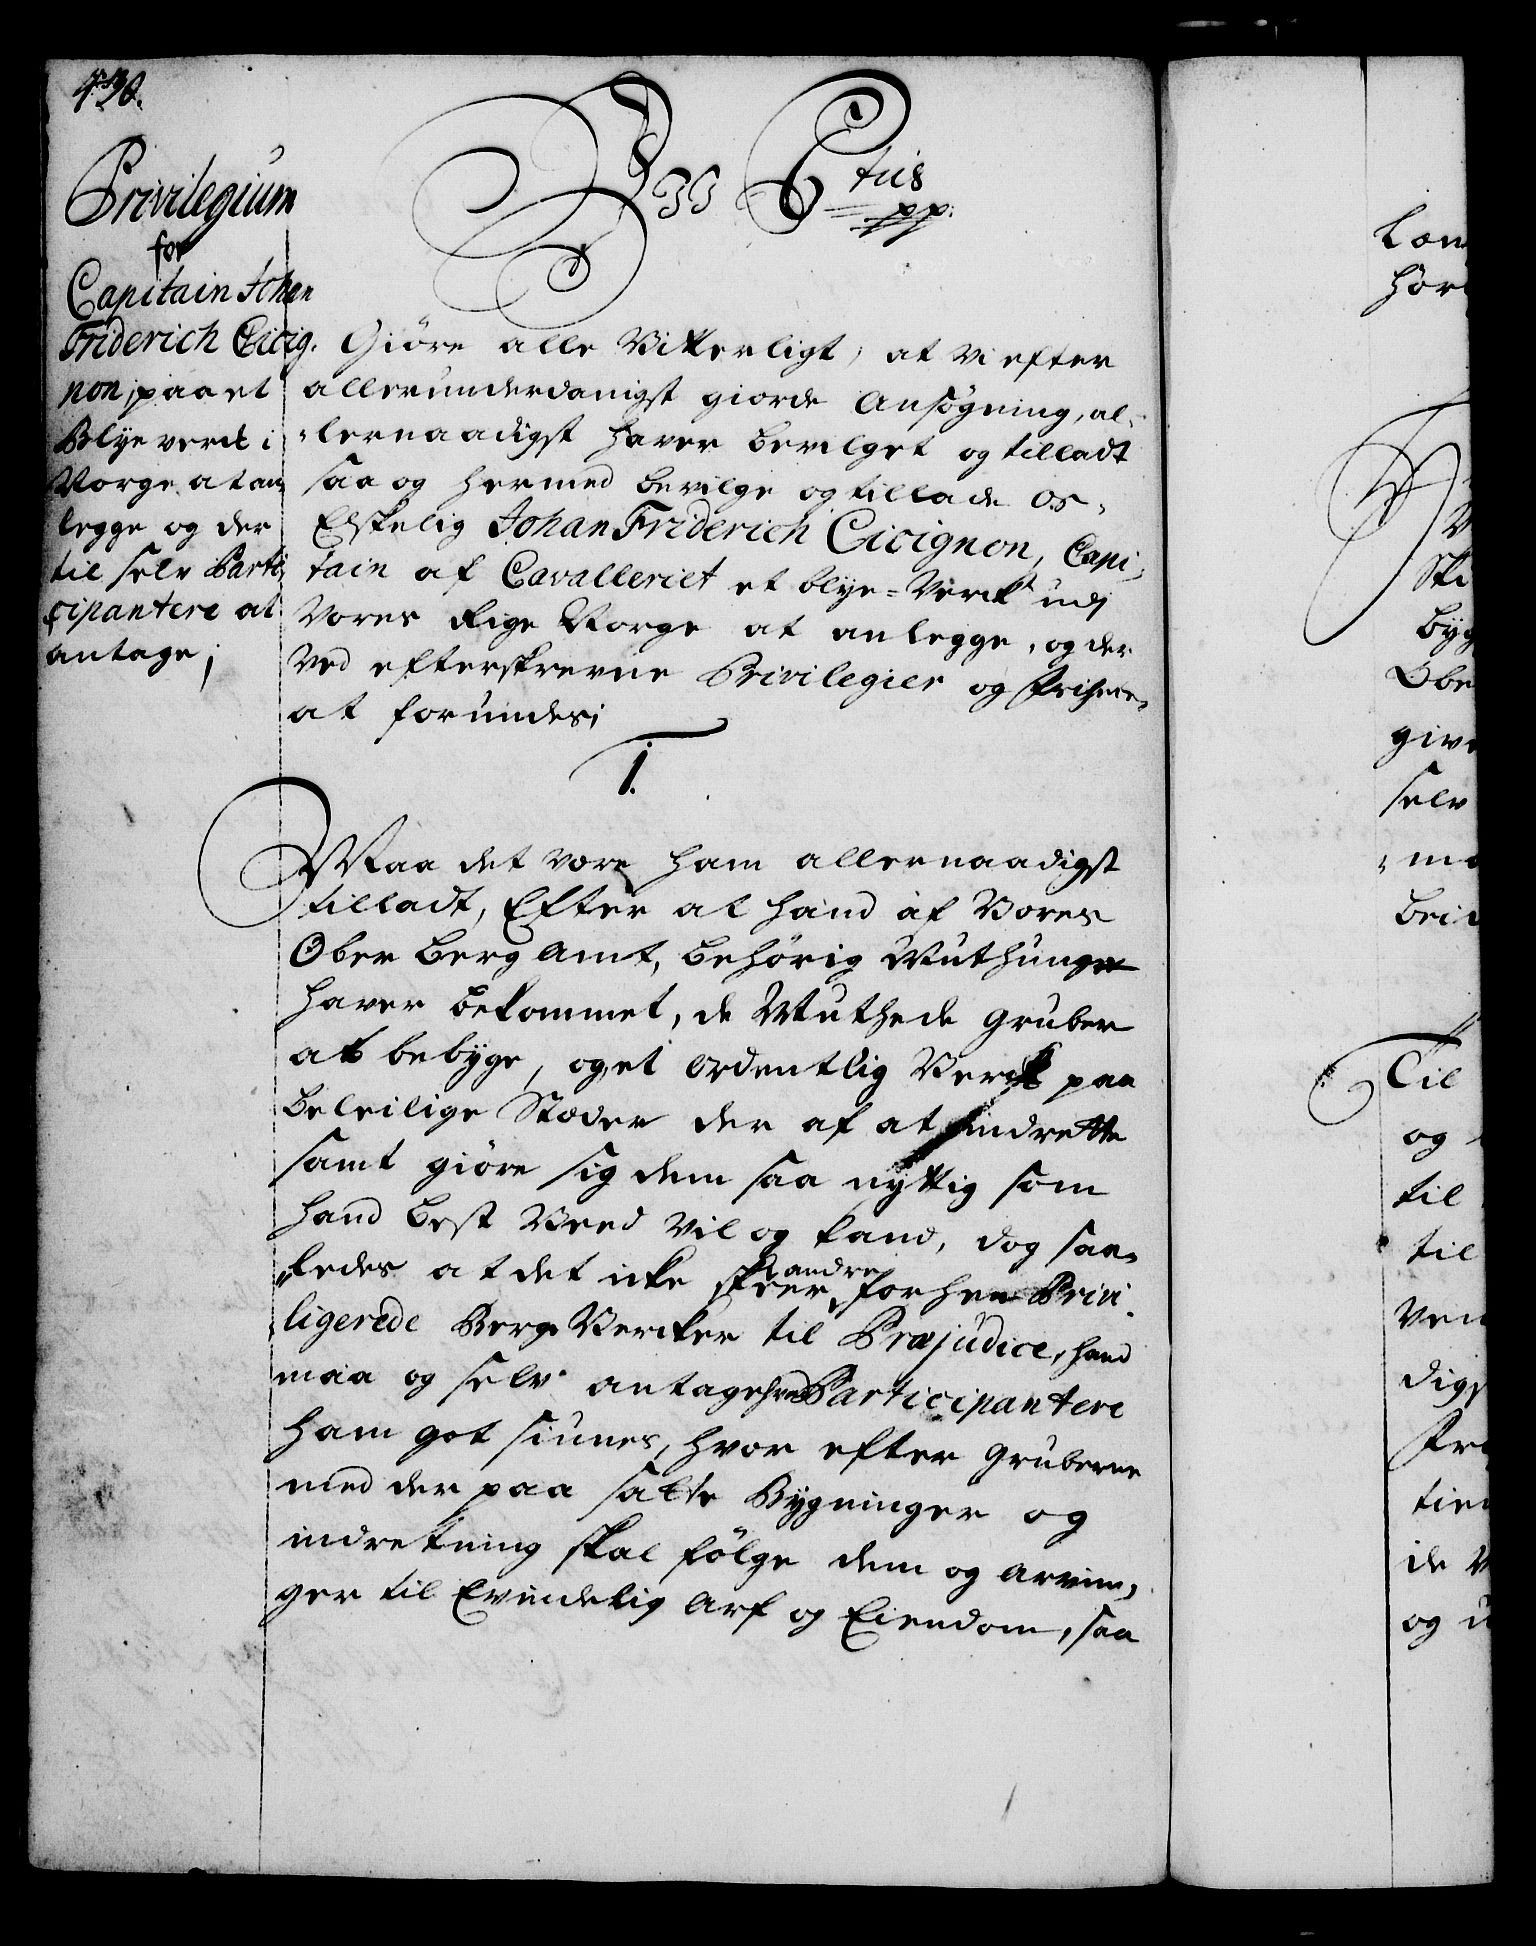 Privilegium
for
Capitain Johan
Friderich Cicig-
non, paa et
Blye verck i
Norge at an
legge og der
til selv Parti
cipantere at
antage;
C 5tus
pp:
Giöre alle Vitterligt, at vi efter
allerunderdanigst giorde Ansögning, al-
lernaadigst hafver bevilget og tilladt
saa og hermed bevilge og tillade Os
Elskelig Johan Friderich Cicignon, Capi-
tain af Cavalleriet et blye-Verck udj
Vores Rige Norge at anlegge, og der
ved efterskrevne Privilegier og friheder
at forundes;
1.
Maa det være ham allernaadigst
tilladt, Efter at hand af Vores
Ober Berg Amt, behörig Muthunger
hafver bekommet, de Muthede gruber
at bebyge, og et Ordentlig Verck paa
beleilige Stæder der af at indrette
samt giöre sig dem saa nyttig som
hand best Veed vil og kand, dog saa-
ledes at det icke skeer andre forhen Privi-
ligerede Berg-Vercker til Præjudice, hand
maa og selv antage hvad Participantere
ham got siunes, hvor efter gruberne
med der paa satte Bygninger og
indretning skal fölge dem og arvin-
ger til Evindelig Arf og Eiendom, saa
hör
Ski
byg
Obe
give
selv
Til
og
til
til
digs
og u